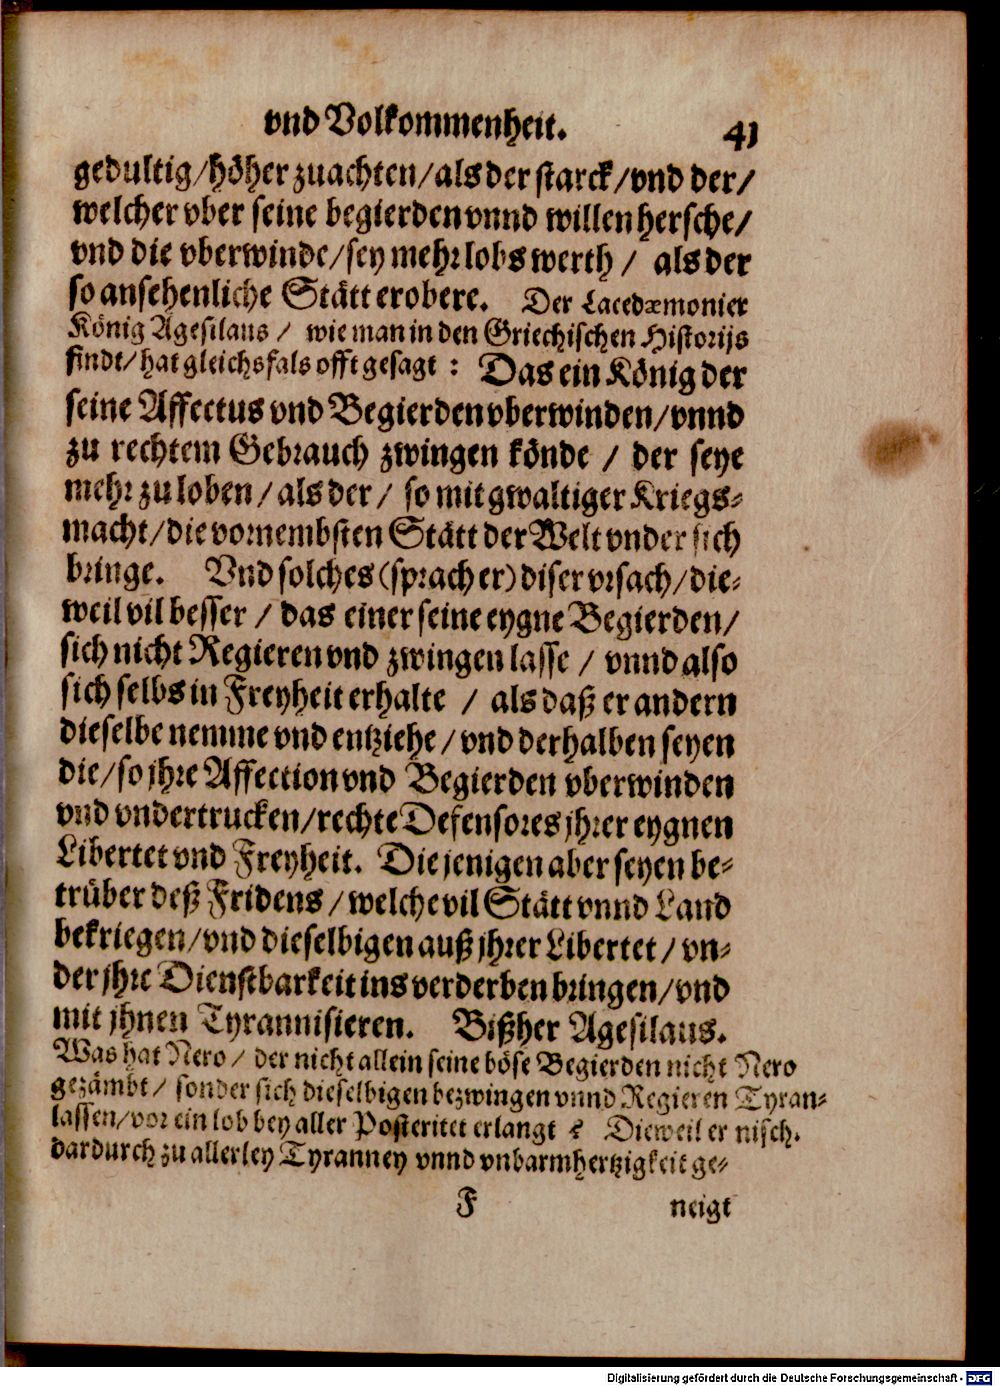 vnd Volkommenheit. 41
gedultig/höher zuachten/als der starck/vnd der/
welcher vber seine begierden vnnd willen hersche/
vnd die vberwinde/sey mehr lobs werth / als der
so ansehenliche Stätt erobere. Der Lacedæmonier
König Agesilaus / wie man in den Griechischen Historijs
findt/hat gleichsfals offt gesagt : Das ein König der
seine Affectus vnd Begierden vberwinden/vnnd
zu rechtem Gebrauch zwingen könde / der seye
mehr zu loben/als der/ so mit gwaltiger Kriegs⸗
macht/die vornembsten Stätt der Welt vnder sich
bringe. Vnd solches (sprach er) diser vrsach/die⸗
weil vil besser / das einer seine eygne Begierden/
sich nicht Regieren vnd zwingen lasse / vnnd also
sich selbs in Freyheit erhalte / als daß er andern
dieselbe nemme vnd entziehe/vnd derhalben seyen
die/so jhre Affection vnd Begierden vberwinden
vnd vndertrucken/rechte Defensores jhrer eygnen
Libertet vnd Freyheit. Die jenigen aber seyen be⸗
trüber deß Fridens /welche vil Stätt vnnd Land
bekriegen/vnd dieselbigen auß jhrer Libertet / vn⸗
der jhre Dienstbarkeit ins verderben bringen/vnd
mit jhnen Tyrannisieren. Bißher Agesilaus.
Was hat Nero / der nicht allein seine böse Begierden nicht Nero
gezämbt/ sonder sich dieselbigen bezwingen vnnd Regieren Tyran⸗
lassen/vor ein lob bey aller Posteritet erlangt ? Dieweil er nisch.
dardurch zu allerley Tyranney vnnd vnbarmhertzigkeit ge⸗
F neigt
Digitalisierung gefördert durch die Deutsche Forschungsgemeinschaft - DFG